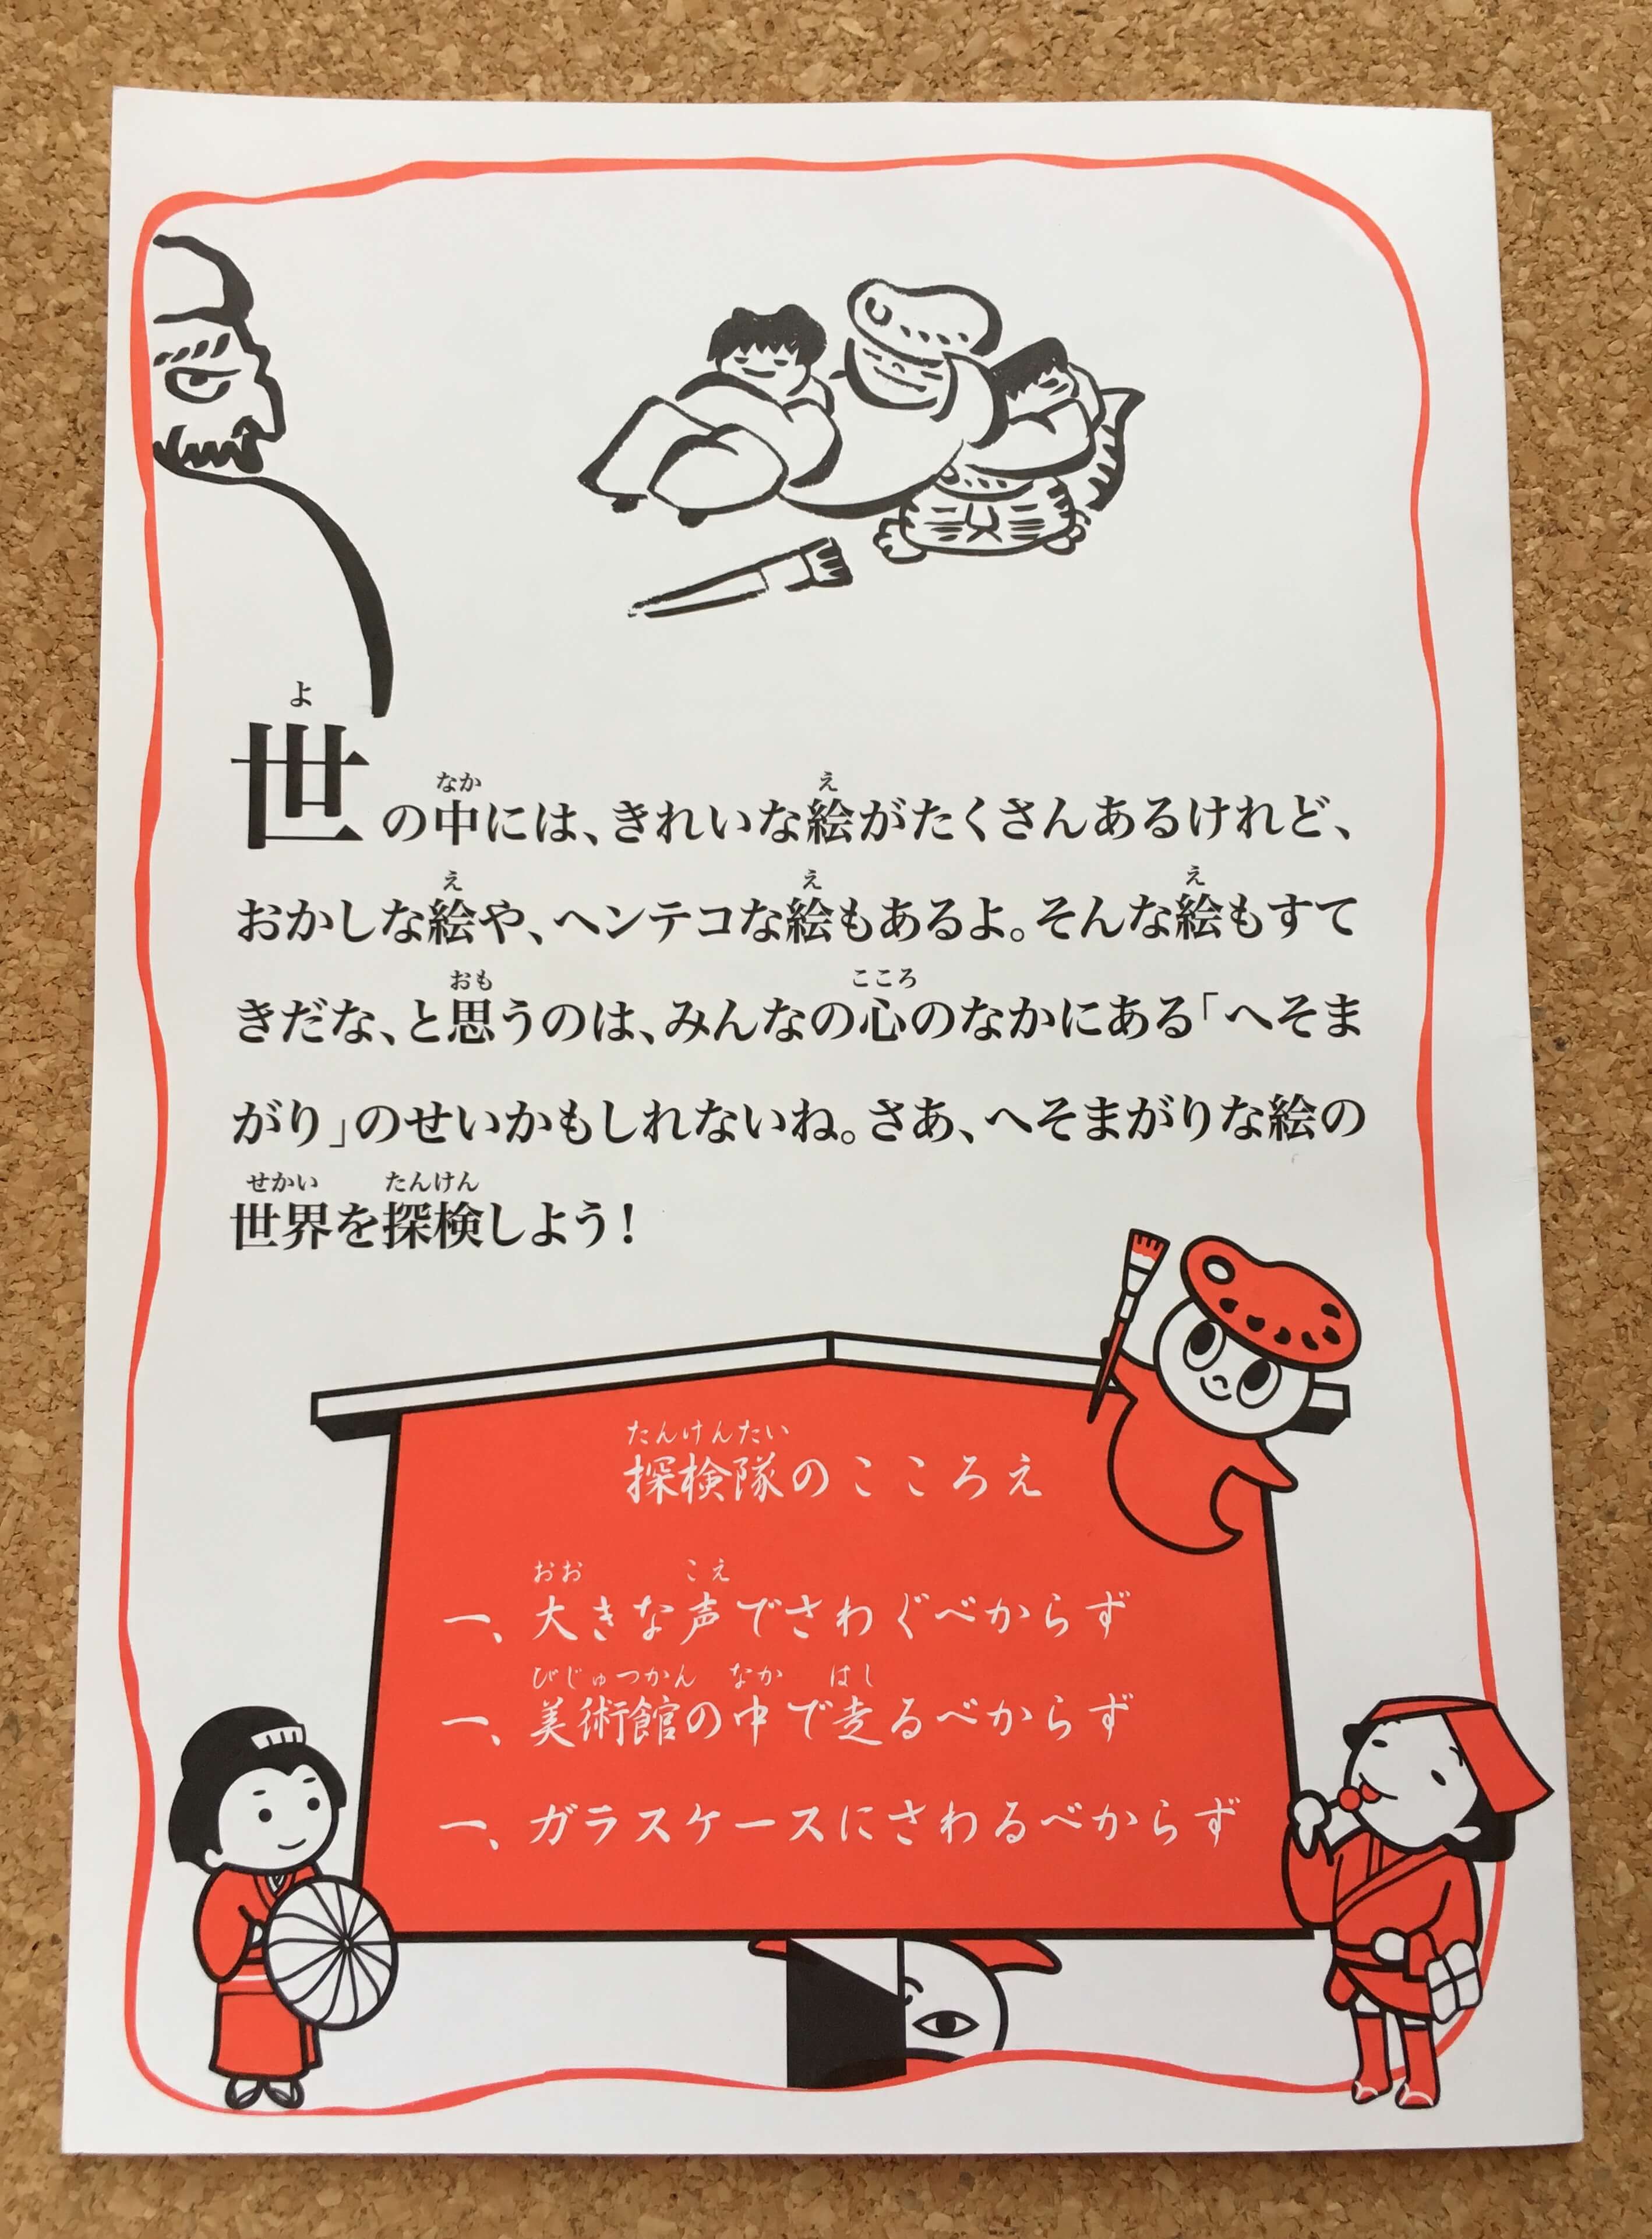 世の中には、きれいな絵がたくさんあるけれど、
おかしな絵や、ヘンテコな絵もあるよ。そんな絵もすて
きだな、と思うのは、みんなの心のなかにある「へそま
がり」のせいかもしれないね。さあ、へそまがりな絵の
世界を探検しよう！
探検隊のこころえ
一、大きな声でさわぐべからず
一、美術館の中で走るべからず
一、ガラスケースにさわるべからず